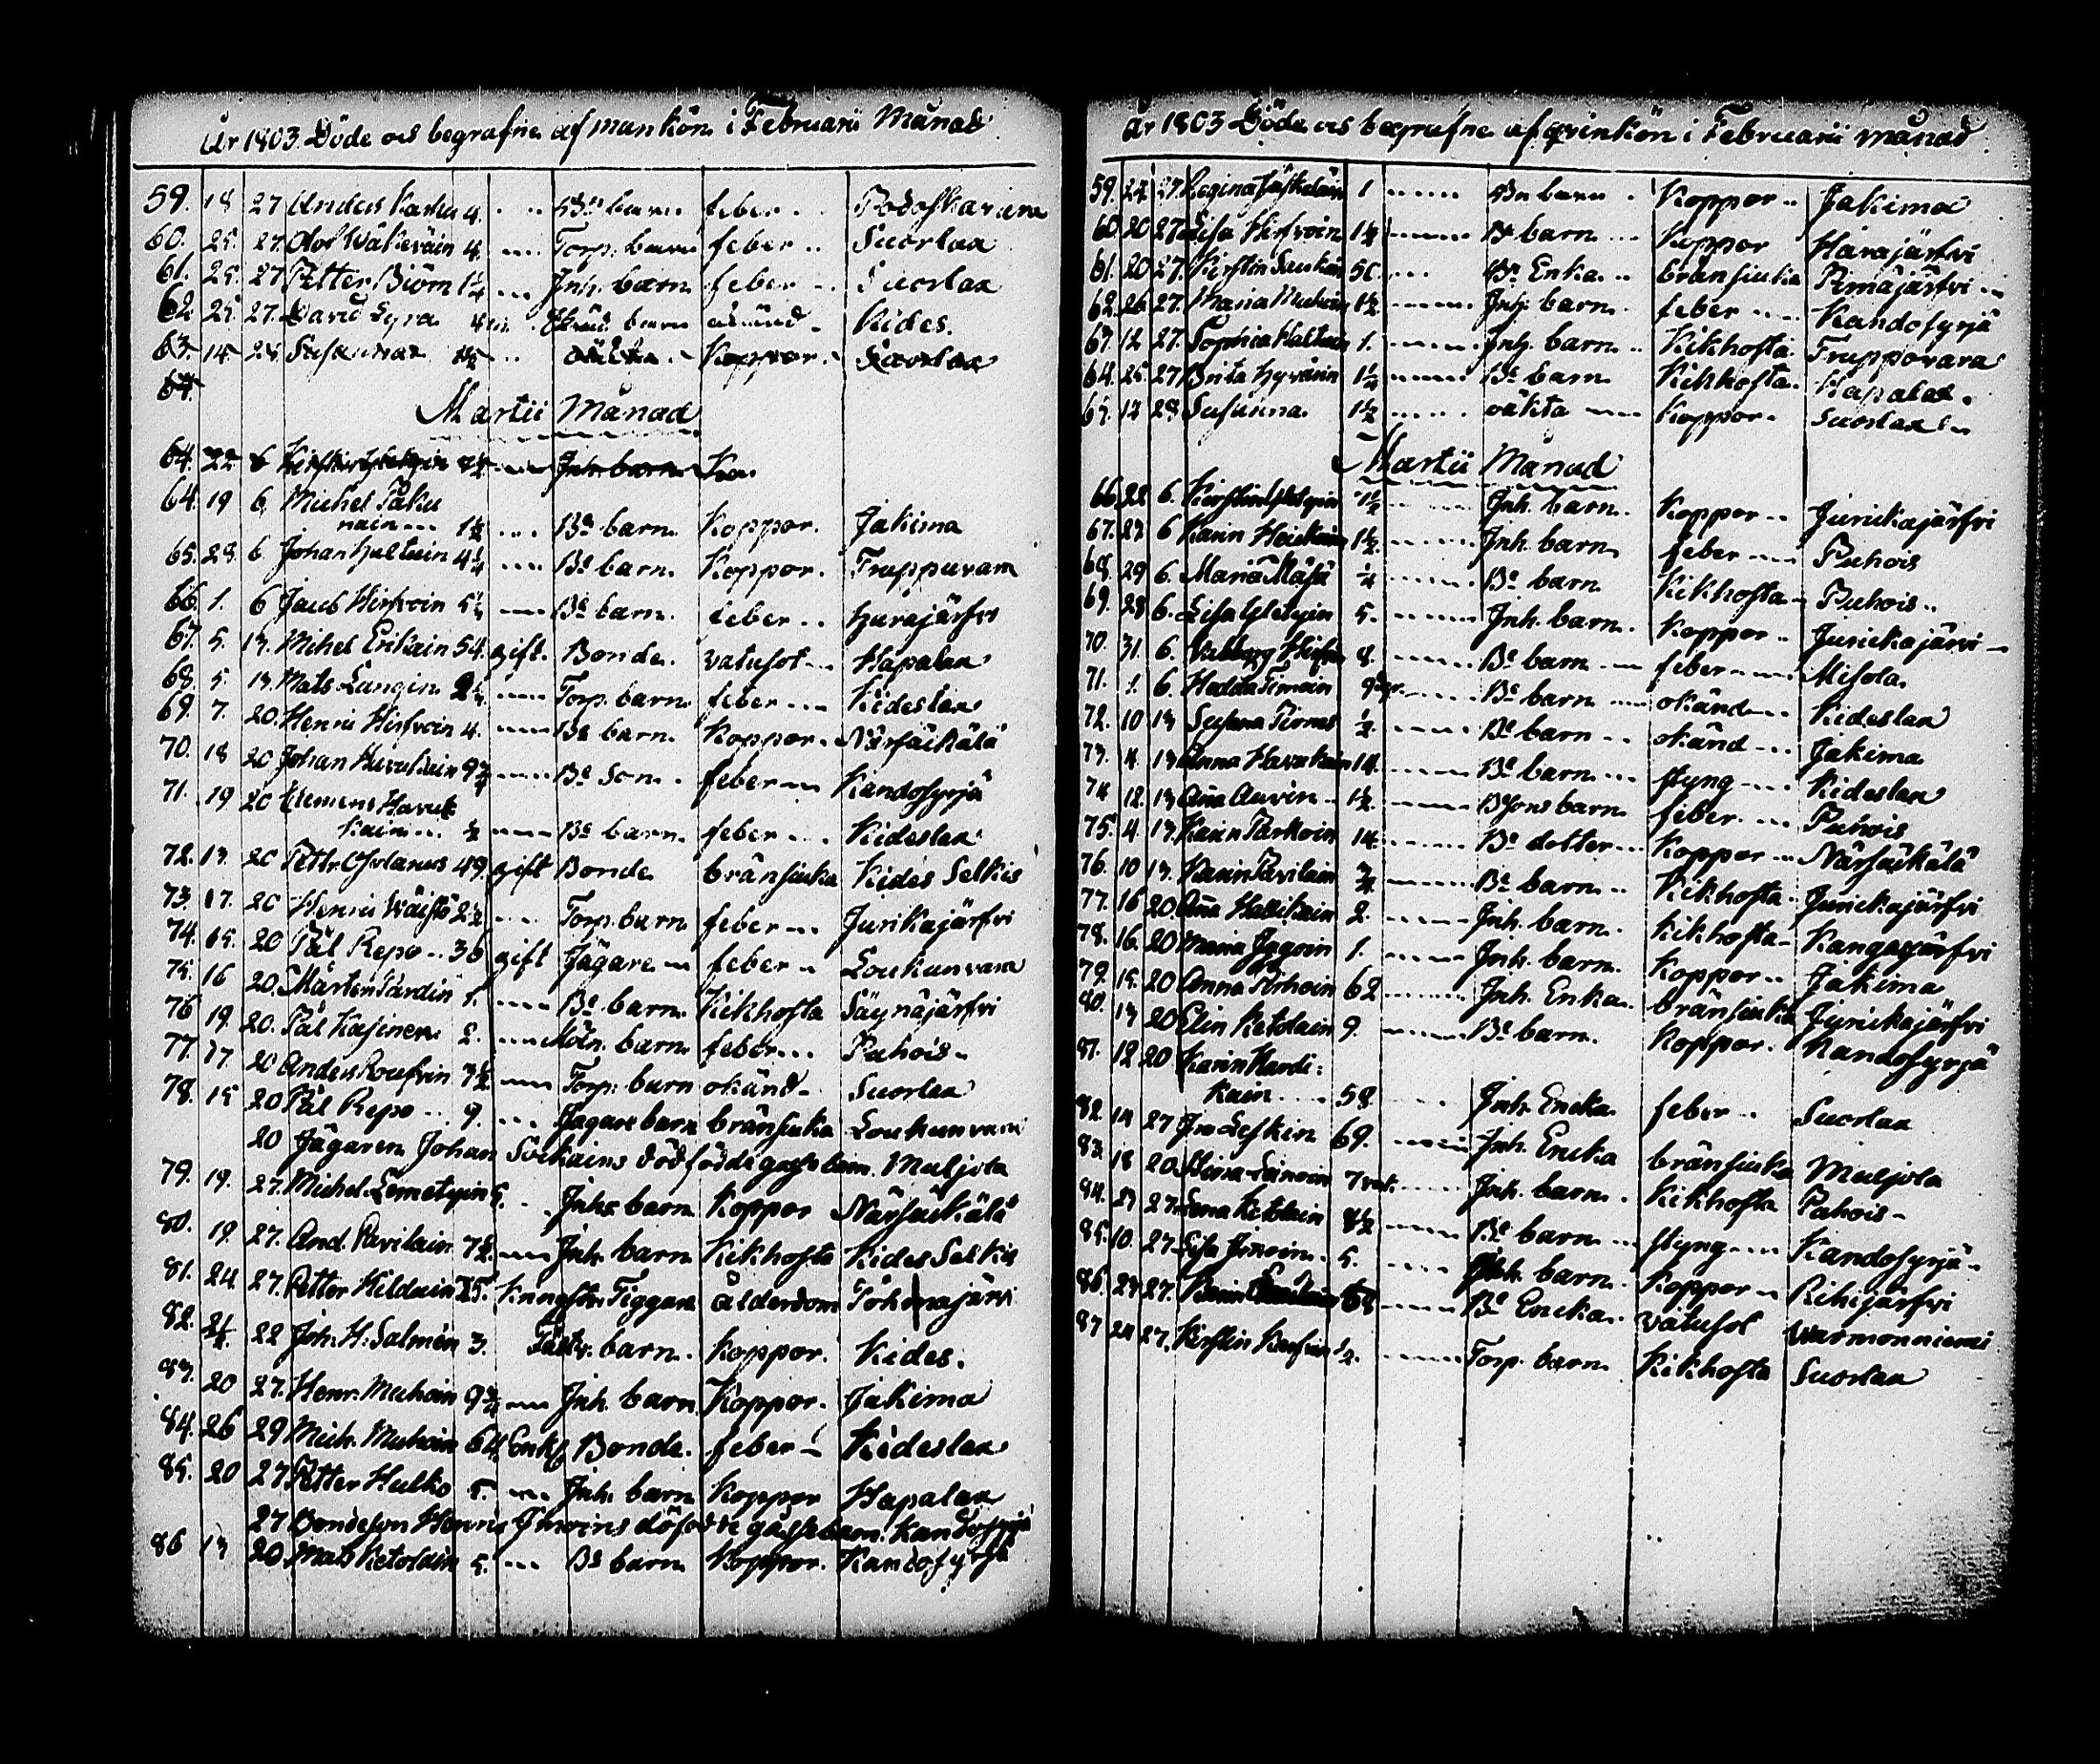 År 1803. Döde och begrafne af mankön i Februarii Månad
59. 18 27 Anders Karhu 4. Bs barn feber Podoskavara
60. 25. 27. Olof Wäkeväin 4. Torp. barn feber Suorlax
61. 25. 27 Petter Biörn 1¼ Inh. barn feber Suorlax
62. 25. 27. David Lyra barn okänd Kides.
63. 15 28. Susanna 1½ oäkta Koppor Suorlax
64.
Martii Månad
64. 22 6 Kirstin 1½ Inh. barn Ko
64. 19 6. Michel Paku
nain 1½ Bs barn Koppor. Jakima
65. 28. 6. Johan Hultuin 4¼ Bs barn Koppor. Truppuvara
66. 1. 6 Jacob Hirfvoin 5¼ Bs barn feber Harajärfvi
67. 5. 13. Michel Erikain 54. gift. Bonde. vatusot Hapalax
68. 5. 13. Mats Langin 2¼ Torp. barn feber Kideslax
69. 7. 20. Henric Hirfvoin 4. Bs barn Koppor. Närsäkälä
70. 18 20 Johan Havukain 9¾ Bs Son feber Kandosyrjä
71. 19 20 Clemens Havuk
kain ½ Bs barn feber Kideslax
72. 13. 20 Petter 49. gift Bonde. bränsiuka Kides Selkis
73. 17. 20 Henric Wäistö 2½ Torp. barn feber Jurikajärfvi
74. 15. 20 Pål Repo 36 gift Jägare feber Loukunvara
75. 16 20. Mårten Pardin 1. Bs barn Kikhosta Säynäjärfvi
76 19. 20. Pål Kasinen 2. Möln. barn feber Puhois
77. 17. 20 Anders Roufvin 3½ Torp. barn okänd Suorlax
78. 15 20 Pål Repo 9. Jägare barn bränsiuka Loukunvara
20 Jägaren Johan Soikains dödfödde gosse barn. Muljola
79. 19. 27. Michel Lemetyin 5. Inhs barn Koppor Närsäkälä
80. 19. 27. And. Pavilain 7½ Inh. barn Kikhosta Kides Selkis
81. 24 27. Petter Hilduin 75. Tiggare ålderdom Tohmajärvi
82. 22 Joh. H. Salmén 3. barn. Koppor. Kides.
83. 20 27. Henr. Muhoin 9¾ Inh. barn Koppor. Jakima
84. 26 29 Mich. Muhoin 64. Enkl. Bonde. feber Kideslax
85. 20 27 Petter Hulko 5. Inh. barn Koppor Hapalax
27 Bondeson Henric Imoins dödfödde gosse barn. Kandosyrjä
86 13 20. Mats Ketolain 5. Bs barn Koppor. Kandosyrjä
År 1803 Döde och begrafne af qvinkön i Februarii månad
59. 22 27 Regina Laskelain 1 Bs barn Koppor Jakima
60. 20 27 Lisa Hirfvoin 1½ Bs barn Koppor Harajärfvi
61. 20 27. Kirstin 50. Bs Enka bränsiuka Rimäjärfvi
62. 26 27. Maria Muhoin 1½ Inh. barn. feber Kandosyrjä
63. 12 27. Sophia 1. Inh. barn Kikhosta. Truppovara
64. 25. 27 Brita Hyväin 1¼ Bs barn Kikhosta. Hapalax.
65. 17 28. Susanna. 1½ oäkta Koppor. Suorlax
Martii Månad
66. 22 6. Kirstin 1½ Inh. barn. Koppor Jurickajärfvi
67. 27 6 Karin Heiskain 1½. Inh. barn feber Puhois
68. 29 6. Maria Mäsä ¼ Bs barn Kikhosta Puhois
69. 28 6. Lisa 5. Inh. barn. Koppor Jurickajärvi
70. 31 6. Walborg Hirfvoin 8. Bs barn feber Misola
71. 1. 6. Hedda Timoin 9 Bs barn okänd Kideslax
72. 10 13 Susana Pirnes ½. Bs barn okänd Jakima
73. 4 13 Anna Havukain 14. Bs barn styng Kideslax
74 12. 13 Ana Auvin 1½. Bsons barn feber Puhois
75. 4 13. Karin Parkoin 14. Bs dotter Koppor Närsäkälä
76. 10 13. Karin Pavilain ¾ Bs barn Kikhosta Jurickajärfvi
77. 16 20 Ana Hallikain 2. Inh. barn. Kikhosta Kangasjärfvi
78. 16. 20 Maria Jggoin 1. Inh. barn. Koppor Jakima
79. 15. 20 Anna 62 Inh. Enka. bränsiuka Jyrickajärfvi
80. 13 20 Elin Ketolain 9. Bs barn. Koppor. Kandosyrjä
81. 12 20 Karin Hardi:
kain 58 Inh. Encka. feber Suorlax
82. 14 27 Leskin 69. Inh. Encka bränsiuka Muljola
83. 18 20. 7 Inh. barn. Kikhosta Puhois
84. 23 27. Lena Ketolain 8½ Bs barn styng Kandosyrjä
85. 10. 27 Lisa Imoin 5. Inh. barn. Koppor Rihijärfvi
86. 23 27. Karin 68 Bs Encka. vatusot Warmonniemi
87 24 27. Kirstin ½. Torp. barn Kikhosta Suorlax